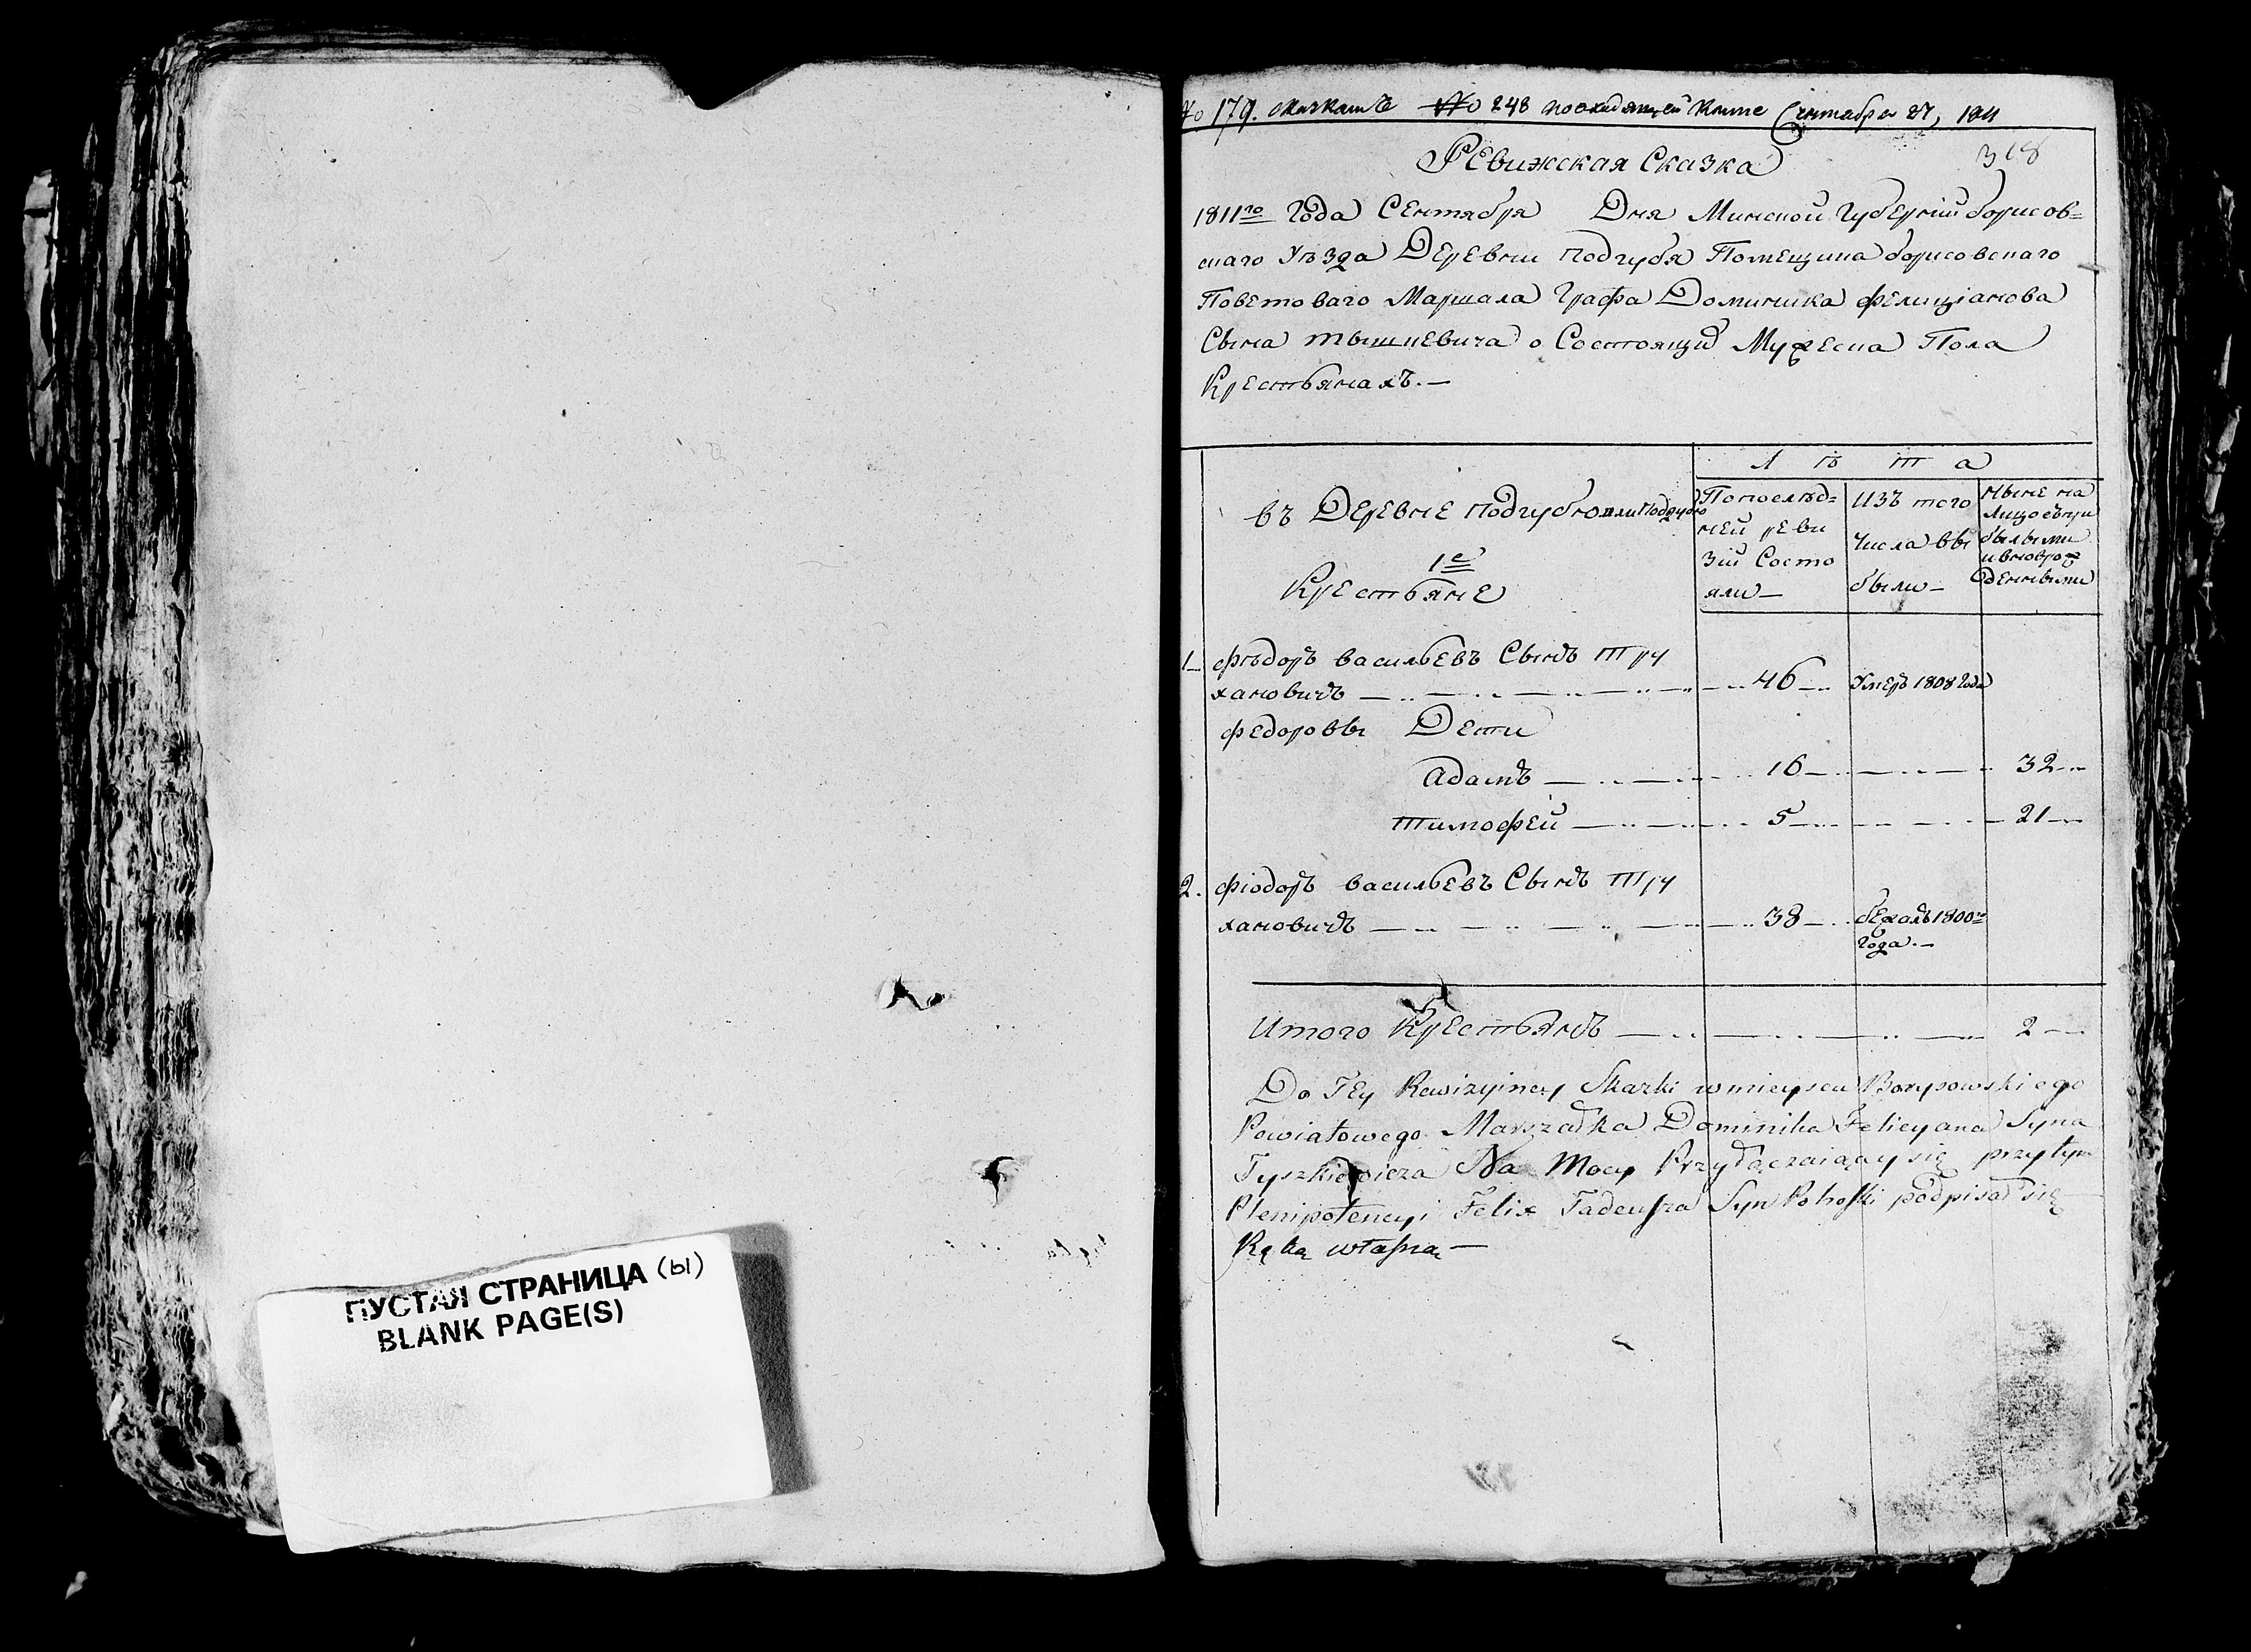 ПУСТАЯ СТРАНИЦА (ы)
BLANK PAGE(S)
№ 179. № 248 по входящей книге Сентября 27, 1811
308
Ревижская Сказка
1811го Года Сентября Дня Минской Губернии борисов=
скаго Уѣзда Деревни Подгубя Помещика борисовскаго
Поветоваго Маршала Графа Доминика фелициянова
Сына тышкевича о Состоящих Мужеска Пола
Крестьянахъ. —
Л ѣ т а
въ Деревне Подгубю или
1е
Крестьяне
По послѣд=
ней реви
зіи Состо
яли —
Изъ того
числа вы
были —
Ныне на
лицо съ при
былыми
и вновь ро
жденными
1 фѣдоръ васильевъ Сынъ Тру
хановичъ 46 Умеръ 1808 Года
федоровы Дети
адамъ 16 32
тимофей 5 21
2. фіодоръ васильевъ Сынъ Тру
хановичъ 38 бежалъ 1800го
Года. —
Итого Крестьянъ 2
Do Tey Rewizyiney Skazki w mieyscu Borysowskiego
Powiatowego Marszałka Dominika Felicyana Syna
Tyszkiewicza Na Mocy Przyłączaiącey się przytym
Plenipotencyi Felix Tadeusza Syn podpisał się
Ręką własną —